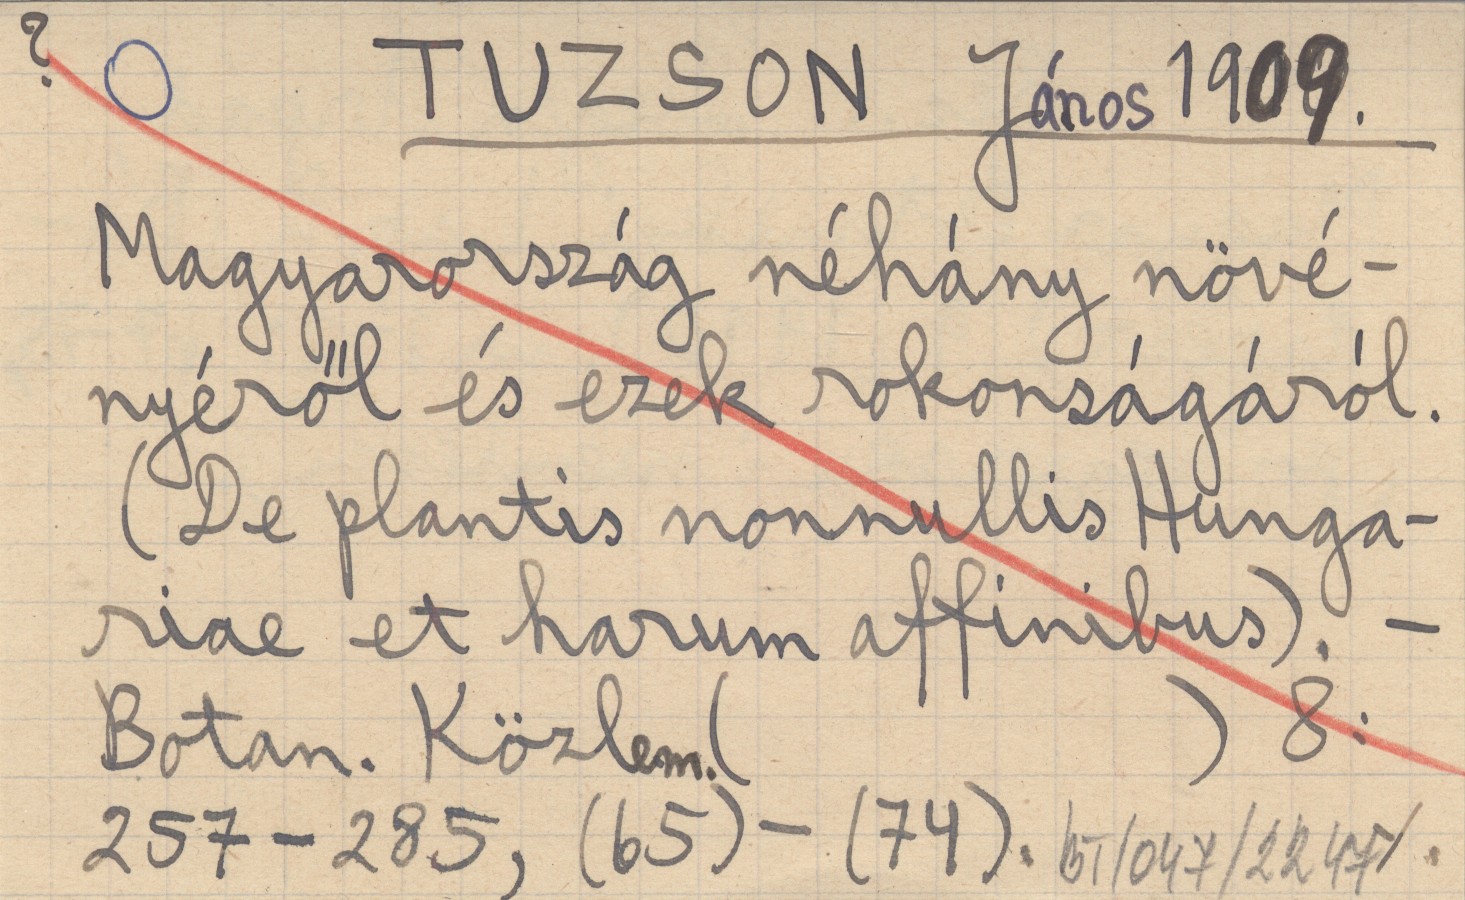 ? O TUZSON János 1909.
Magyarország néhány növé-
nyéről és ezek rokonságáról.
(De plantis nonnullis Hunga-
riae et harum affinibus). –
Botan. Közlem. ( ) 8:
257 – 285, (65) – (74).